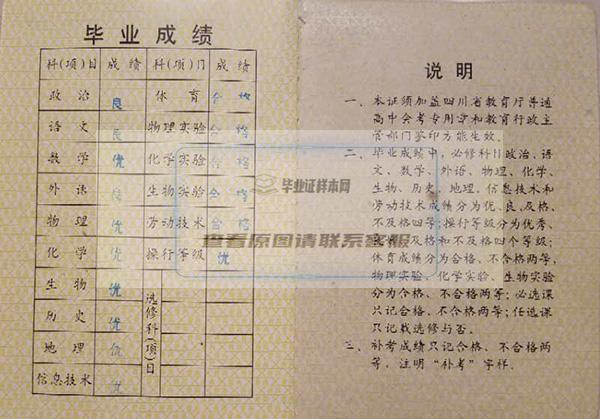 毕业成绩
科(项)目 成绩 科(项)门 成绩
政治 良 体育 合格
语文 良 物理实验 合格
数学 优 化学实验 合格
外语 良 生物实验 合格
物理 优 劳动技术 合格
化学 优 操行等级 优
生物 优 选修科(项)目
历史 优
地理 优
信息技术 优
毕业证样本网
查看原图请联系客服
说明
一、本证须加盖四川省教育厅普通
高中会考专用章和教育行政主
管部门签印方能生效。
二、毕业成绩中，必修科目政治、语
文、数学、外语、物理、化学、
生物、历史、地理、信息技术和
劳动技术成绩分为优、良、及格、
不及格四等；操行等级分为优秀、
及格和不及格四个等级；
体育成绩分为合格、不合格两等，
物理实验、化学实验、生物实验
分为合格、不合格两等；必选课
只记合格、不合格两等；任选课
只记载选修与否。
三、补考成绩只记合格、不合格两
等，注明“补考”字样。